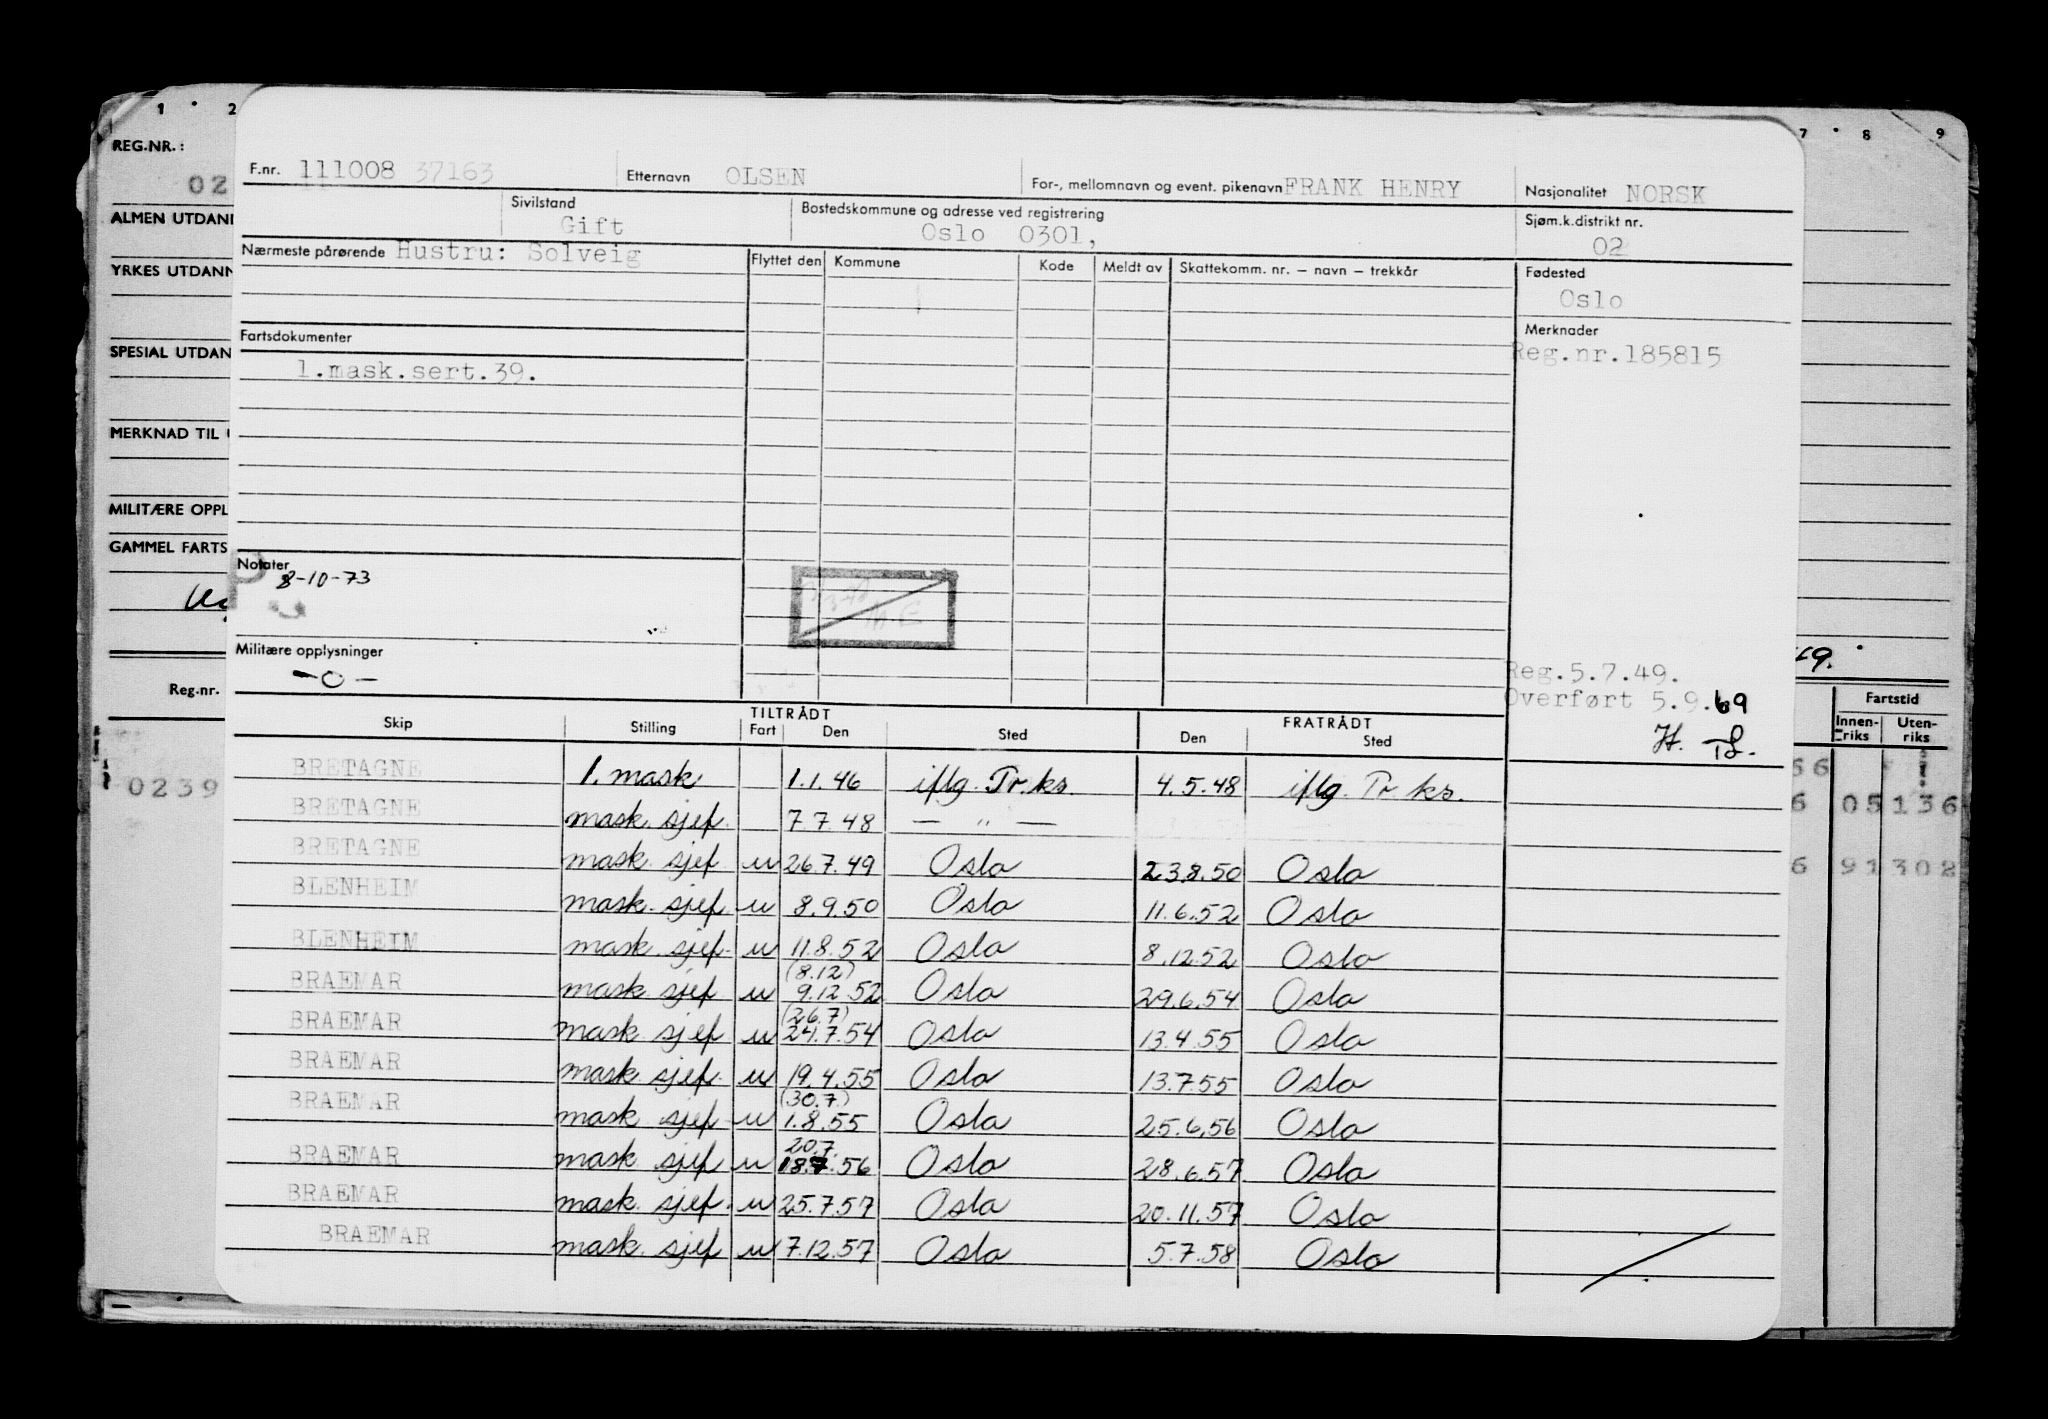 1 2 7 8 9
REG.NR.:
02
ALMEN UTDAN
YRKES UTDANN
SPESIAL UTDAN
MERKNAD TIL
MILITÆRE OPPL
GAMMEL FARTS
Reg.nr.
0239
F.nr. 111008 37163 Etternavn OLSEN For-, mellomnavn og event. pikenavn FRANK HENRY Nasjonalitet NORSK
Sivilstand Gift Bostedskommune og adresse ved registrering Oslo 0301, Sjøm.k.distrikt nr. 02
Nærmeste pårørende Hustru: Solveig Flyttet den Kommune Kode Meldt av Skattekomm. nr. – navn – trekkår Fødested
Oslo
Fartsdokumenter Merknader
1.mask.sert.39. Reg.nr.185815
Notater
8-10-73
Militære opplysninger
-0-
Reg.5.7.49.
Overført 5.9.69
H. TS.
TILTRÅDT FRATRÅDT
Skip Stilling Fart Den Sted Den Sted
BRETAGNE 1. mask 1.1.46 iflg. Tr.ks 4.5.48 iflg. Tr.ks.
BRETAGNE mask.sjef. 7.7.48 — " —
BRETAGNE mask.sjef u 26.7.49 Oslo 23.8.50 Oslo
BLENHEIM mask.sjef u 8.9.50 Oslo 11.6.52 Oslo
BLENHEIM mask.sjef. u 11.8.52 Oslo 8.12.52 Oslo
(8.12)
BRAEMAR mask.sjef u 9.12.52 Oslo 29.6.54 Oslo
(26.7)
BRAEMAR mask.sjef u 24.7.54 Oslo 13.4.55 Oslo
BRAEMAR mask.sjef. u 19.4.55 Oslo 13.7.55 Oslo
(30.7)
BRAEMAR mask.sjef u 1.8.55 Oslo 25.6.56 Oslo
20.7.
BRAEMAR mask.sjef u 18.7.56 Oslo 28.6.57 Oslo
BRAEMAR mask.sjef. u 25.7.57 Oslo 20.11.57 Oslo
BRAEMAR mask.sjef u 7.12.57 Oslo 5.7.58 Oslo
49.
Fartstid
Innen-riks Uten-riks
66
6 05 136
6 91 302